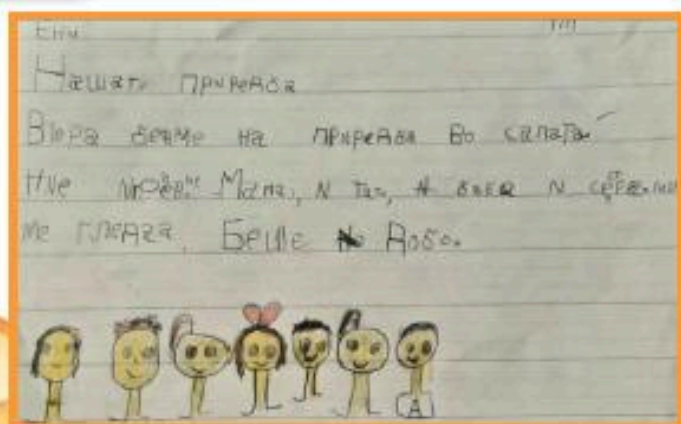 Ени
Нашата приредба
Вчера бевме на приредба во салата
Ние Мама, и и баба и
ме гледаа. Беше Добо.
А